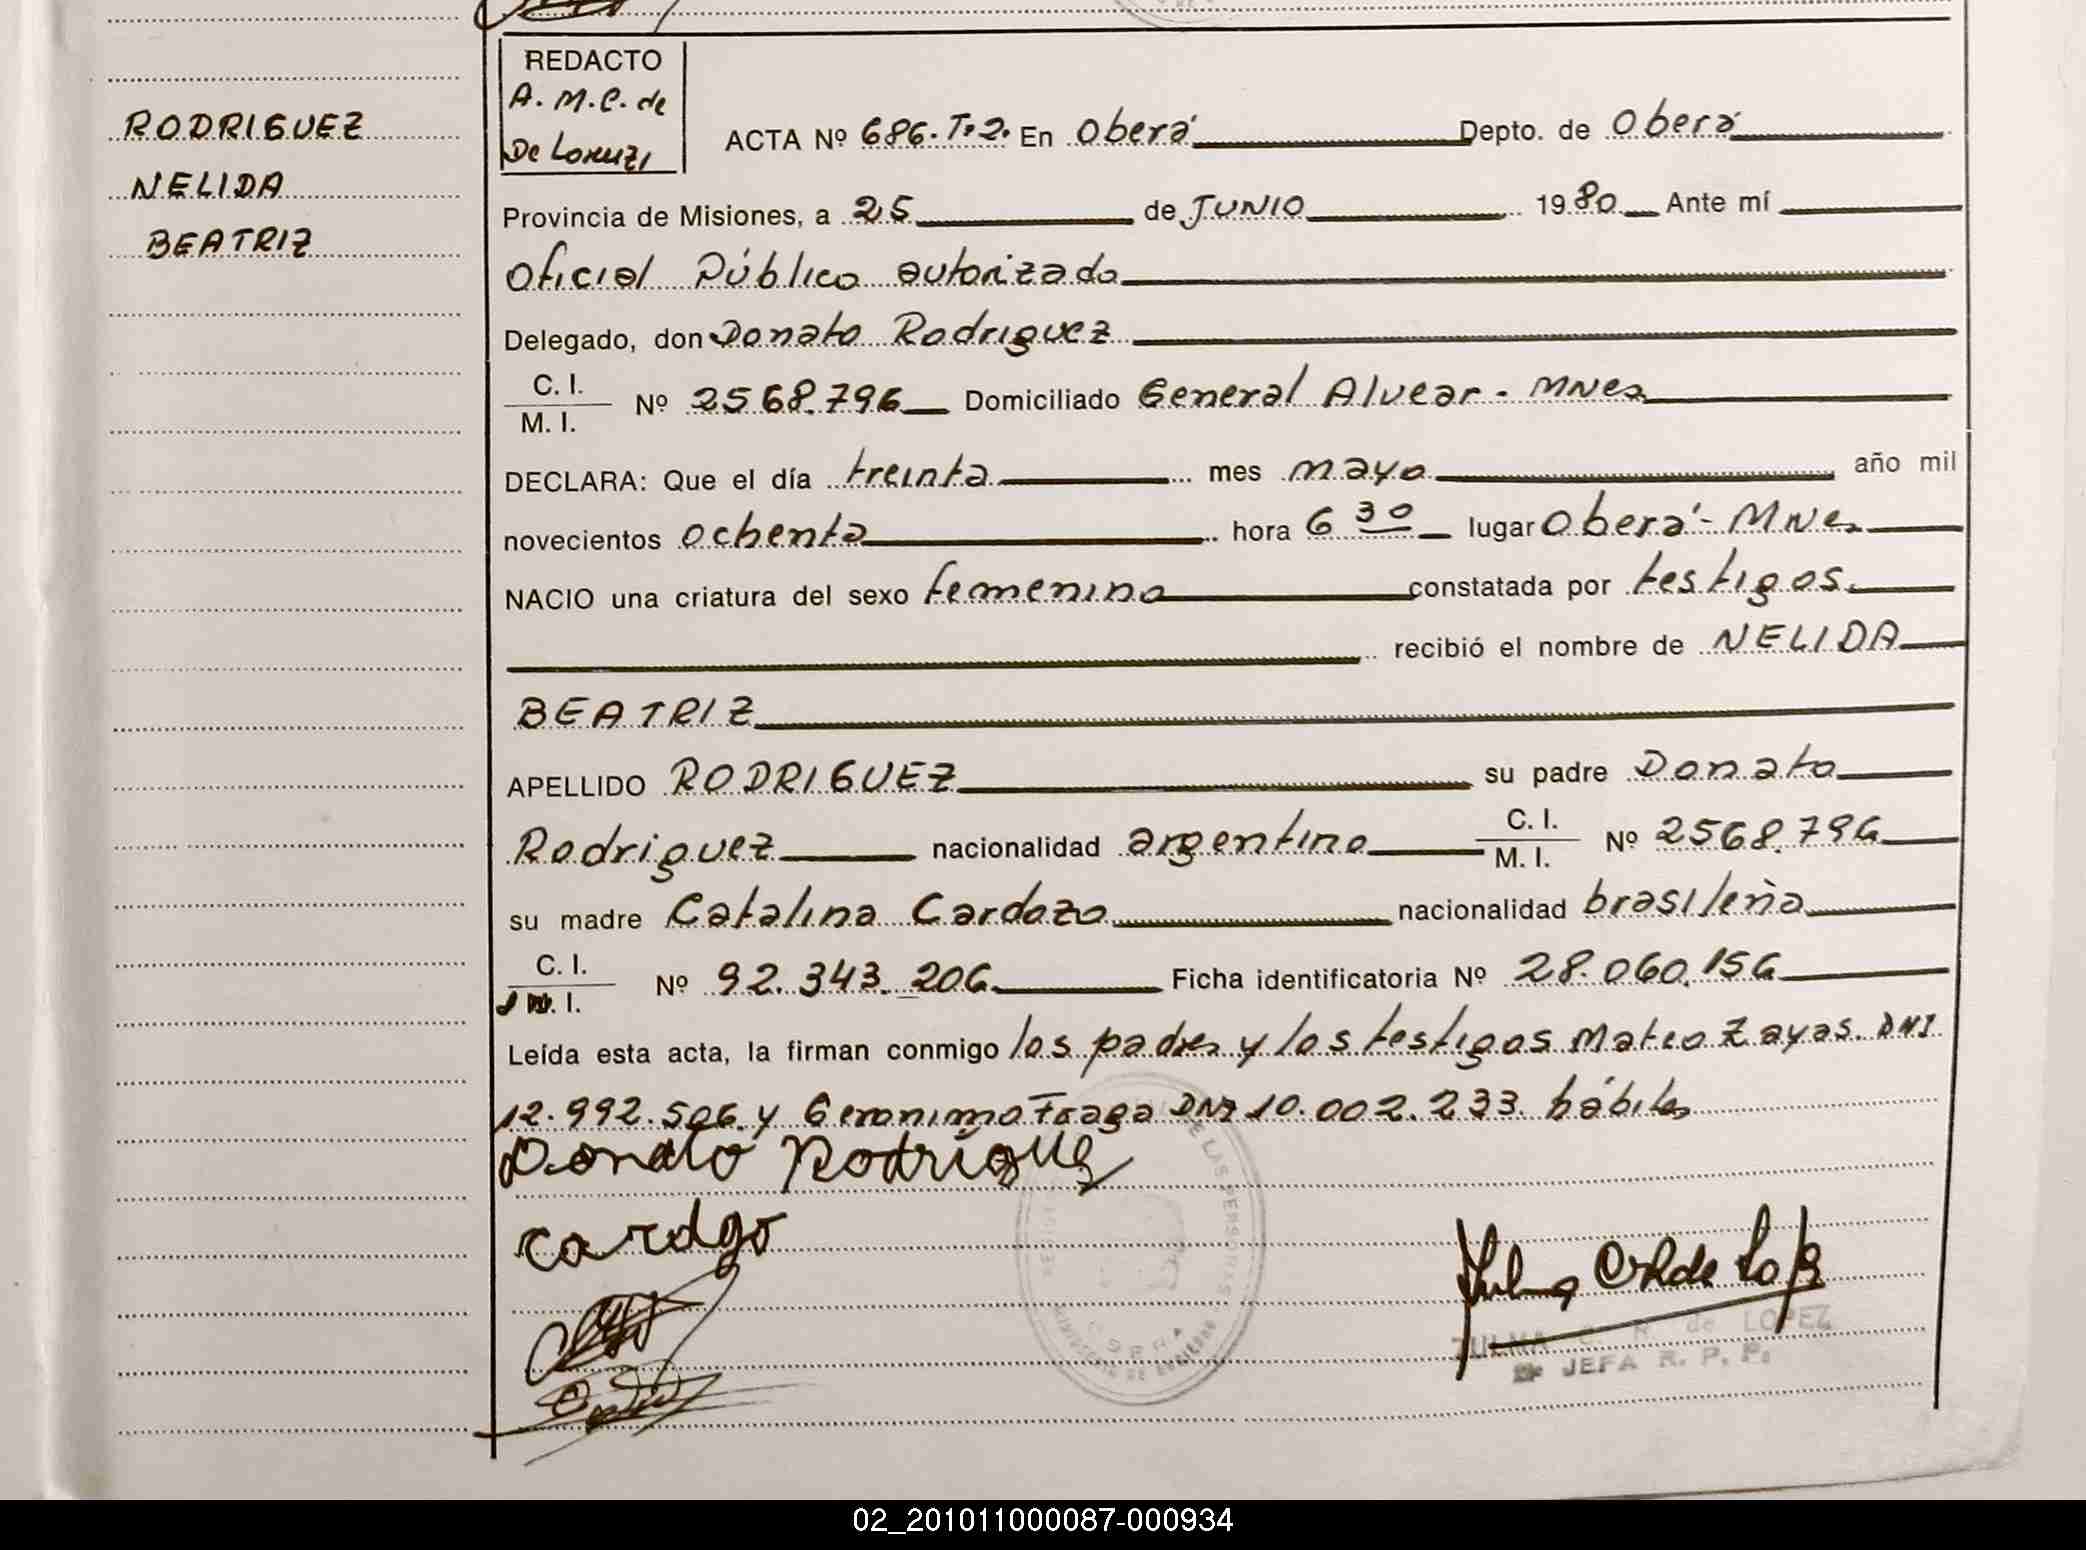 RODRIGUEZ
NELIDA
BEATRIZ
REDACTO
A. M. C. de
De Lorenzi
ACTA Nº 686. T. 2. En Oberá Depto. de Oberá
Provincia de Misiones, a 25 de JUNIO 1980 Ante mí
Oficial Público autorizado
Delegado, don Donato Rodriguez
C. I.
M. I. Nº 2568.796 Domiciliado General Alvear - MNes
DECLARA: Que el día treinta mes mayo año mil
novecientos ochenta hora 6 30 lugar Oberá - MNes
NACIO una criatura del sexo femenino constatada por testigos
recibió el nombre de NELIDA
BEATRIZ
APELLIDO RODRIGUEZ su padre Donato
Rodriguez nacionalidad argentino C. I.
M. I. Nº 2568.796
su madre Catalina Cardozo nacionalidad brasileña
C. I.
I. Nº 92.343.206 Ficha identificatoria Nº 28.060.156
Leída esta acta, la firman conmigo los padres y los testigos Mateo Zayas. DNI
12.992.506 y Geronimo Fraga DNI 10.002.233 hábiles
Donato Rodriguez
DE LAS PERSONAS
OBERA
MINISTERIO DE GOBIERNO
ZULMA C. R. de LOPEZ
JEFA R. P. P.
02_201011000087-000934